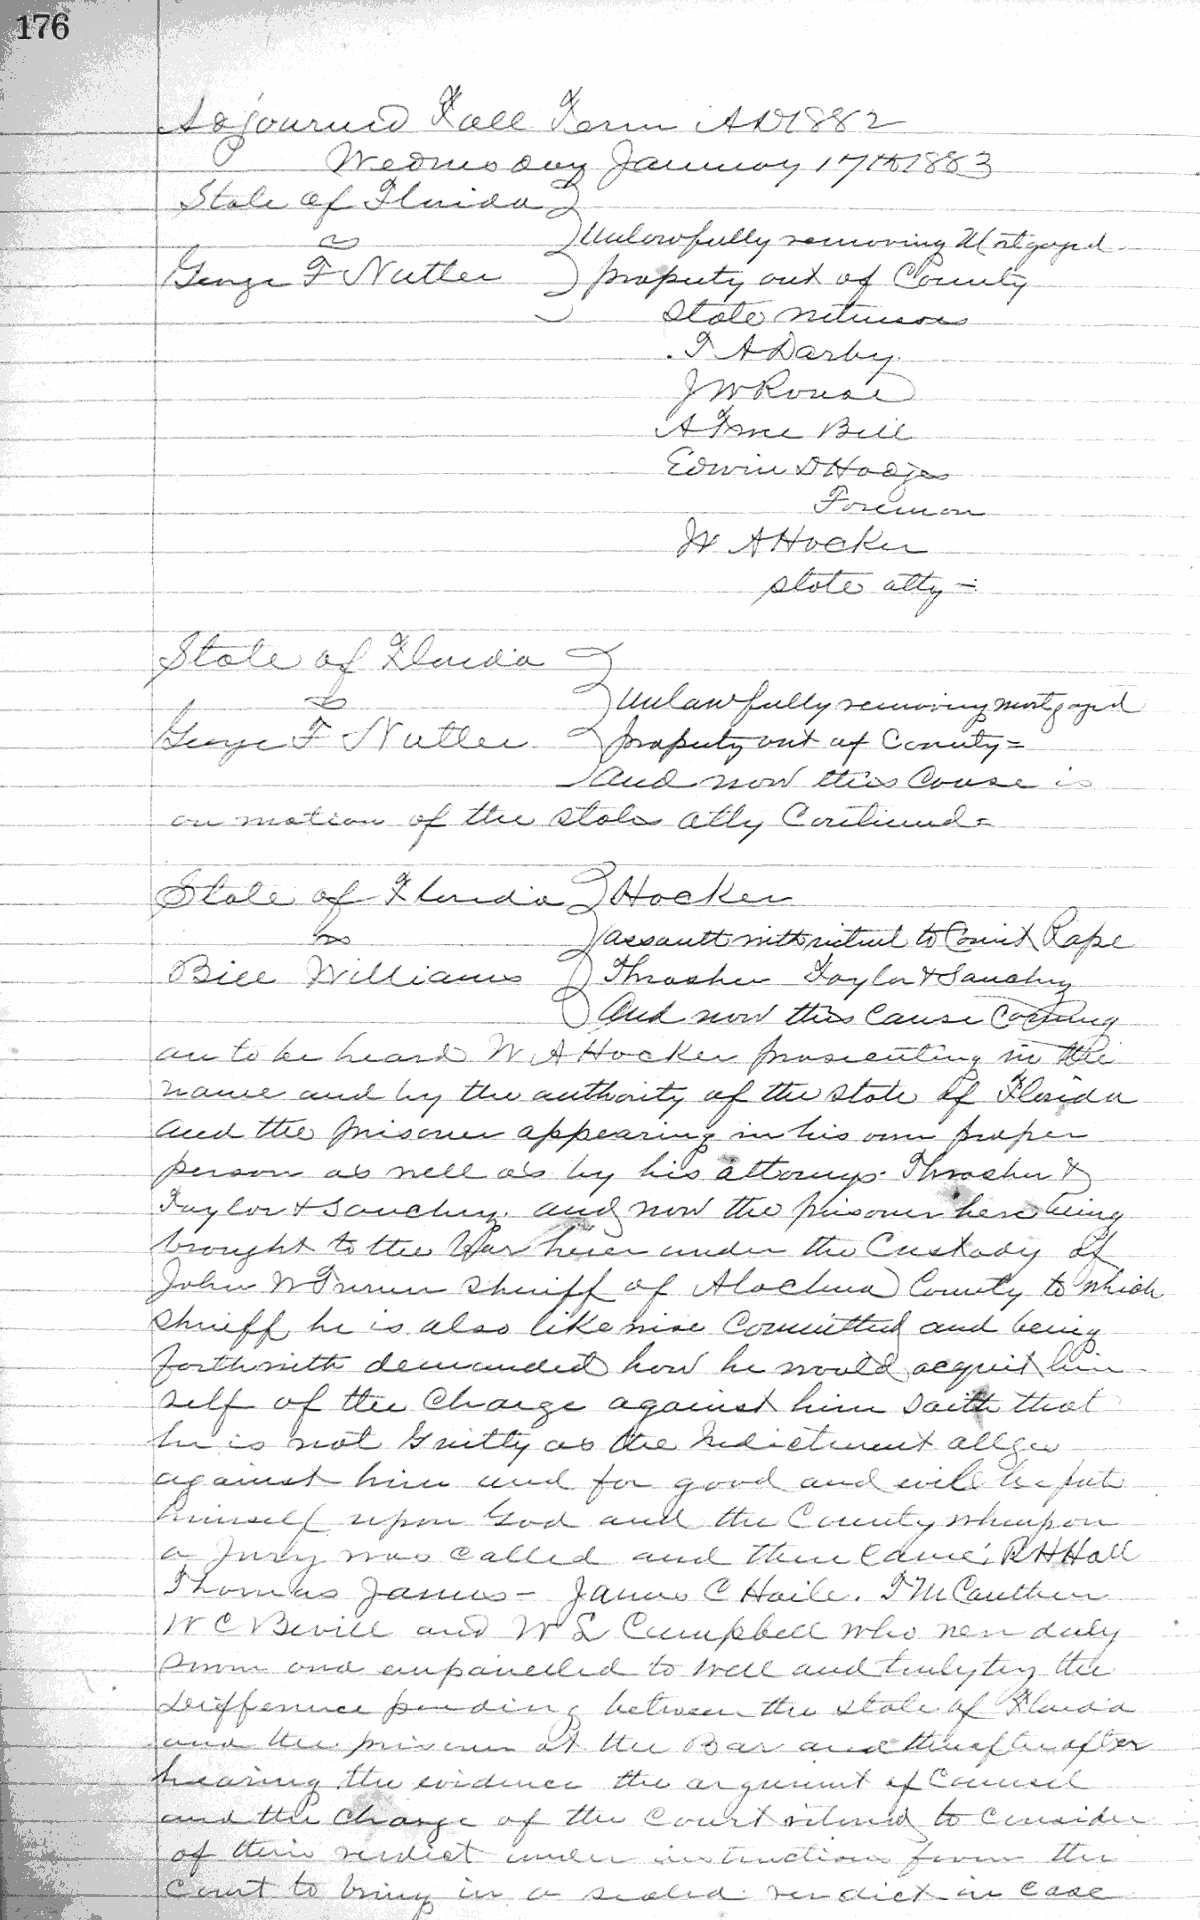 176
Adjourned Fall Term AD 1882
Wednesday January 17th 1883
State of Florida
vs
Unlawfully removing Mortgaged
George F Nutter
property out of County
State witnesses
T A Darby
J W Rouse
A True Bill
Edwin D Hodges
Foreman
W A Hocker
State atty -
State of Florida
vs
Unlawfully removing mortgaged
George F Nutter
property out of County =
And now this Cause is
on motion of the State atty Continued =
State of Florida
Hocker
vs
assault with intent to Comit Rape
Bill Williams
Thrasher Taylor & Sanchez
And now this Cause Coming
on to be heard W A Hocker prosecuting in the
name and by the authority of the State of Florida
and the prisoner appearing in his own proper
person as well as by his attorneys Thrasher &
Taylor & Sanchez. and now the prisoner here being
brought to the Bar here under the Custody of
John W Turner Sheriff of Alachua County to which
Sheriff he is also likewise Committed and being
forthwith demanded how he would acquit him
self of the Charge against him Saith that
he is not Guilty as the Indictment alleges
against him and for good and evil he puts
himself upon God and the County whereupon
a Jury was called and there came: R H Hall
Thomas James - James C Haile. T McCauthen
W C Bevill and W L Campbell who were duly
sworn and empanelled to well and truly try the
Difference pending between the State of Florida
and the prisoner at the Bar and thereafter after
hearing the evidence the argument of Counsel
and the Charge of the Court retired to Consider
of their verdict under instructions from the
Court to bring in a sealed verdict in case